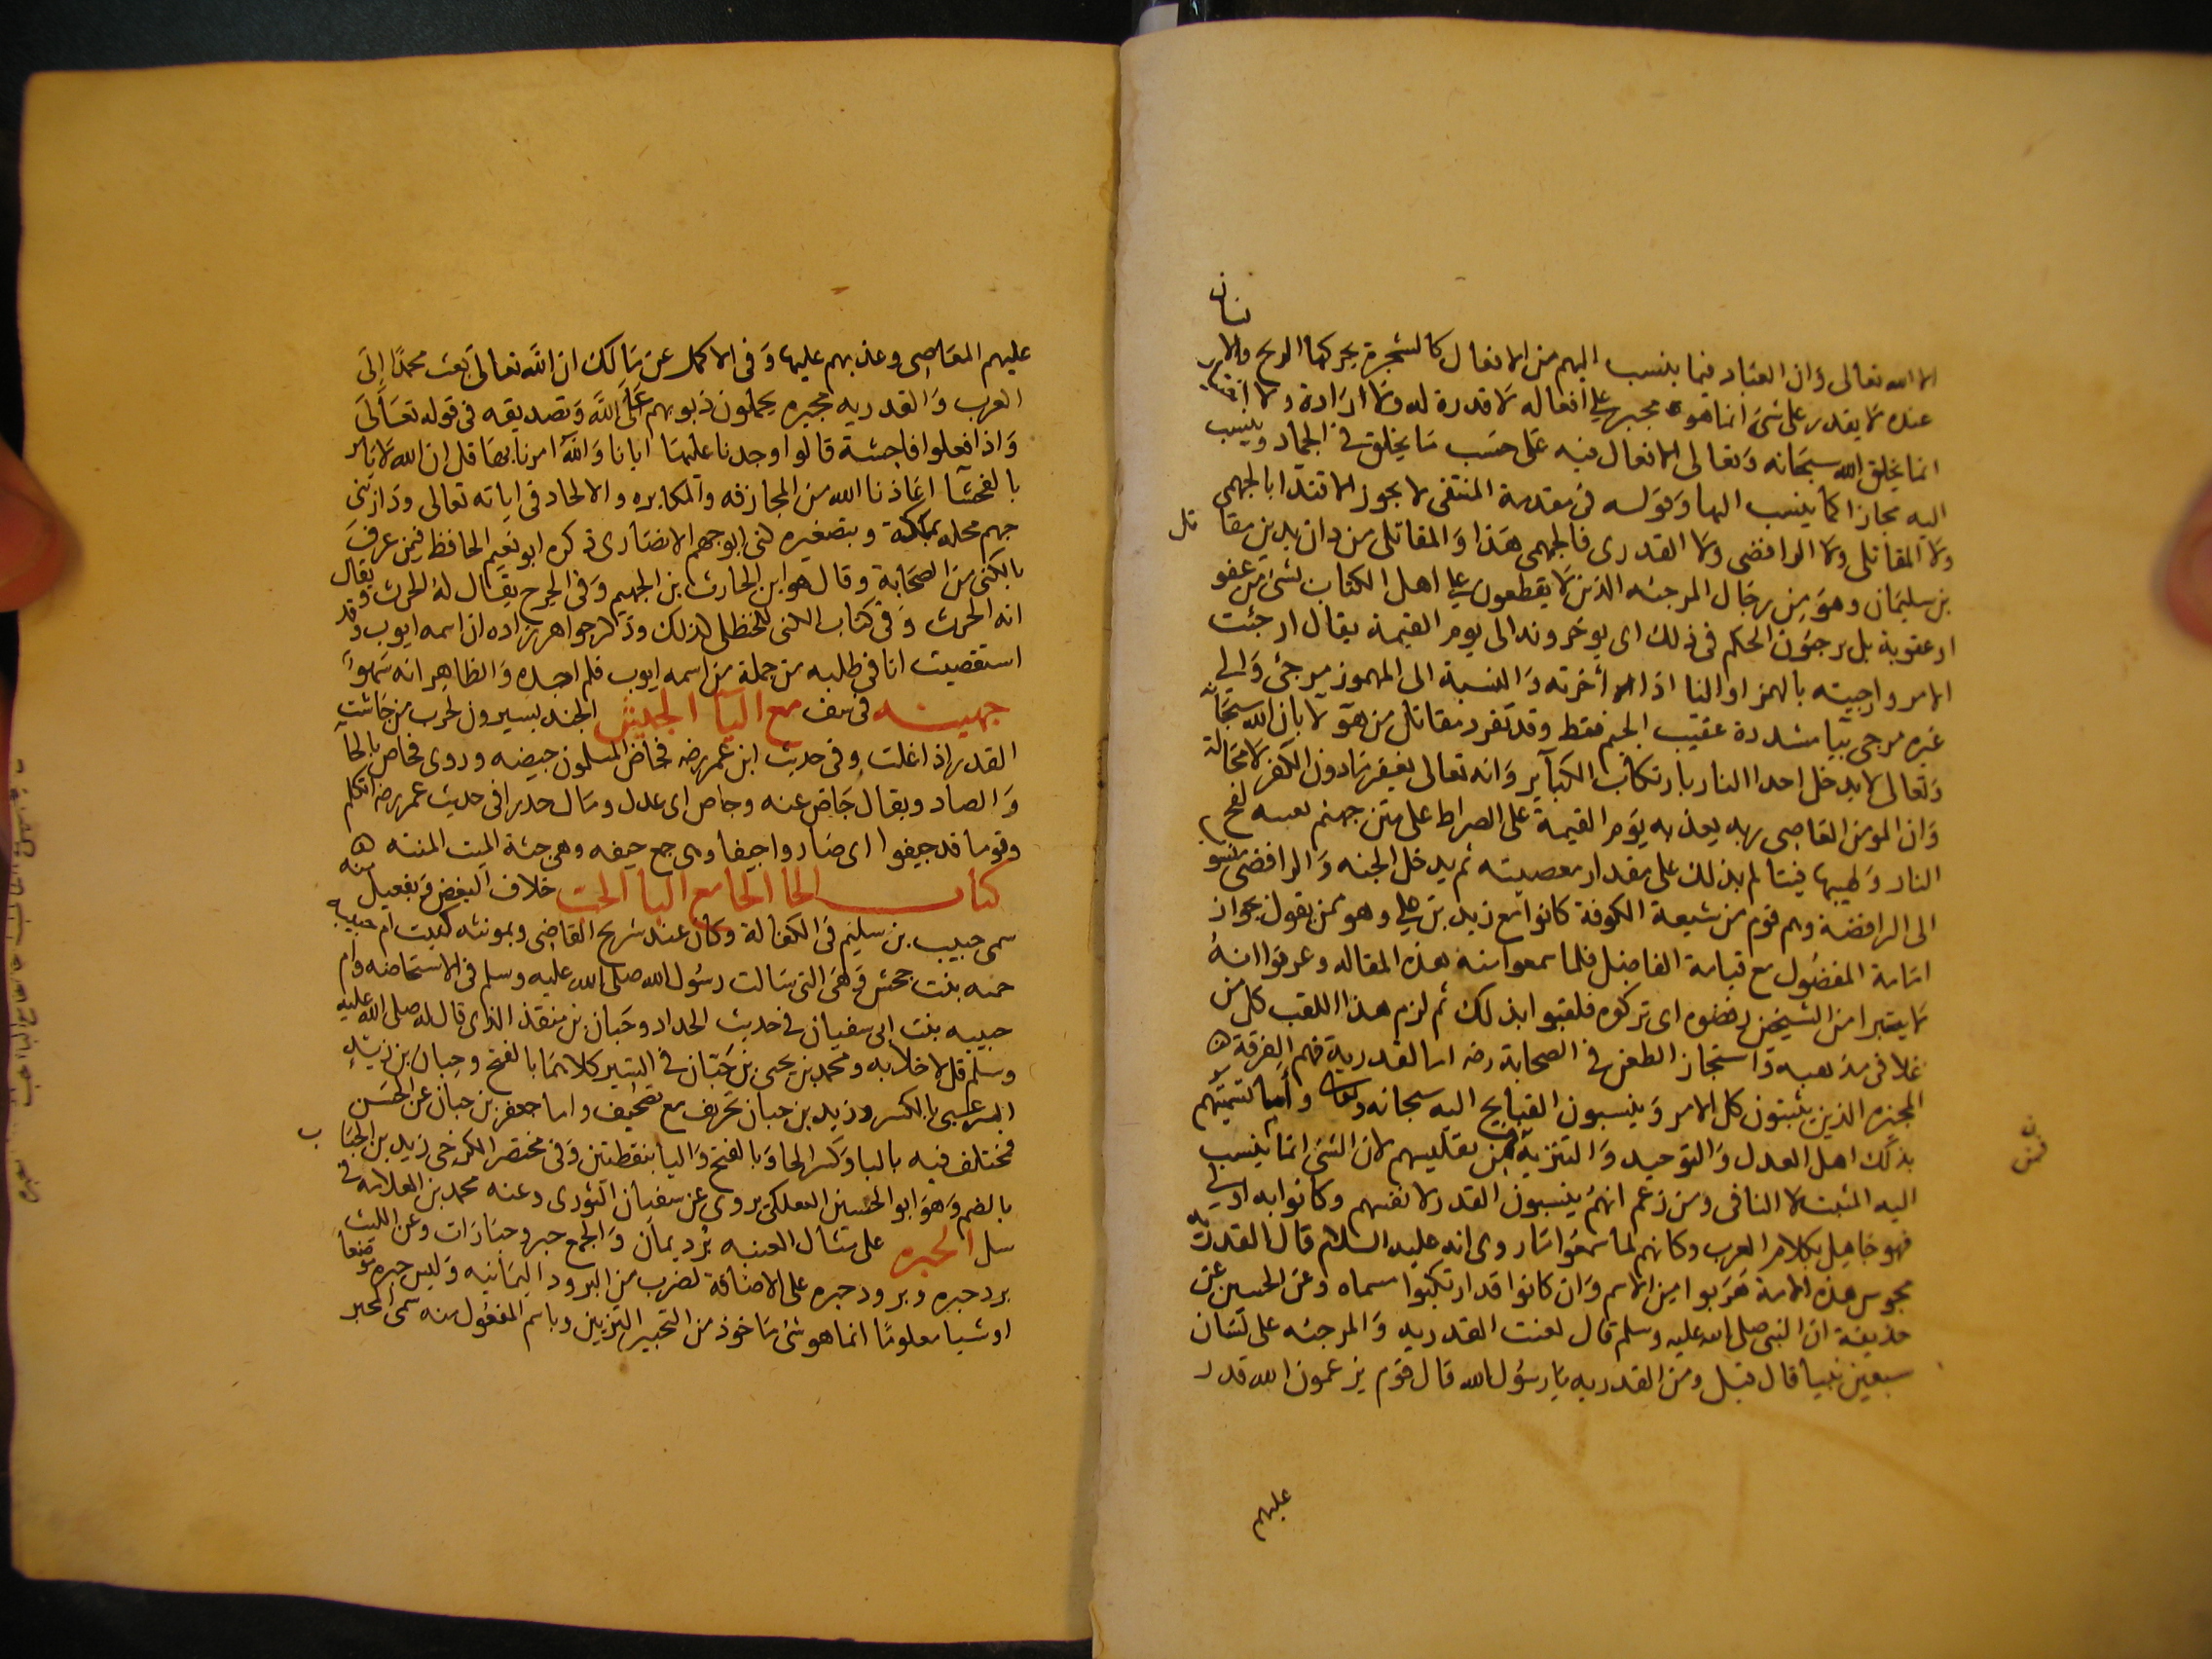 الا الله تعالى وان العباد فيما ينسب اليهم من الافعال كالشجرة يحركها الريح والانسان
عنده لا يقدر على شئ انما هو مجبر على افعاله لا قدرة له ولا ارادة ولا اختيار
انما يخلق الله سبحانه وتعالى الافعال فيه على حسب ما يخلق في الجماد وينسب
اليه مجازا كما ينسب اليها وقوله في مقدمة المنتقى لا يجوز الاقتدا بالجهمي
ولا المقاتلي ولا الرافضي ولا القدري فالجهمي هذا والمقاتلي من دان بدين مقاتل
بن سليمان وهو من رجال المرجئه الذين لا يقطعون على اهل الكتاب بشئ من عفو
او عقوبة بل يرجئون الحكم في ذلك اى يوخرونه الى يوم القيمة يقال ارجئت
الامر وارجيته بالهمز او اليا اذا أخرته والنسبة الى المهموز مرجئ والى
غيره مرجى بيا مشددة عقيب الجيم فقط وقد تفرد مقاتل من هولا بان الله سبحانه
وتعالى لا يدخل احدا النار بارتكاب الكبآير وانه تعالى يغفر مادون الكفر لا محالة
وان المومن العاصى ربه يعذبه يوم القيمة على الصراط على متن جهنم يصيبه لفح
النار ولهيبها فيتالم بذلك على مقدار معصيته ثم يدخل الجنه والرافضي منسوب
الى الرافضة وهم قوم من شيعة الكوفة كانوا مع زيد بن علي وهو ممن يقول بجواز
امامة المفضول مع قيامة الفاضل فلما سمعوا منه هذه المقاله وعرفوا انه
لا يتبرا من الشيخين رفضوه اى تركوه فلقبوا بذلك ثم لزم هذا اللقب كل من
غلا في مذهبه واستجاز الطعن في الصحابة رضه اما القدرية فهم الفرقة
المجبره الذين يثبتون كل الامر وينسبون القبايح اليه سبحانه وتعالى واما تسميتهم
بذلك اهل العدل والتوحيد والتنزيه فمن تعكيسهم لان الشئ انما ينسب
اليه المثبت لا النافي ومن زعم انهم ينسبون القدر لانفسهم وكانوا به اولى
فهو جاهل بكلام العرب وكانهم لما سمعوا ما روى انه عليه السلام قال القدرية
مجوس هذه الامة هربوا من الاسم وان كانوا قد ارتكبوا مسماه وعن الحسن عن
حذيفة ان النبي صلى الله عليه وسلم قال لعنت القدريه والمرجئه على لسان
سبعين نبيا قال قيل ومن القدريه يا رسول الله قال قوم يزعمون الله قدر
عليهم
عليهم المعاصى وعذبهم عليها وفي الاكمل عن مالك ان الله تعالى بعث محمدا الى
العرب والقدريه مجبره يحملون ذنوبهم على الله وتصديقه في قوله تعالى
واذا فعلوا فاحشة قالوا وجدنا عليها ابانا والله امرنا بها قل ان الله لا يامر
بالفحشآ اعاذنا الله من المجازفه والمكابره والالحاد في اياته تعالى ودار بنى
جهم محله بمكة وبتصغيره كنى ابو جهم الانصارى ذكره ابو نعيم الحافظ فيمن عرف
بالكنى من الصحابة وقال هو ابن الحارث بن الجهيم وفي الجرح يقال له الحرث ويقال
انه الحرث وفي كتاب الكنى للحنظلى كذلك وذكر جواهر زاده ان اسمه ايوب وقد
استقصيت انا في طلبه من جملة من اسمه ايوب فلم اجده والظاهر انه سهو
جهينه في سف مع اليآ الجيش الجند يسيرون لحرب من جاشت
القدر اذا غلت وفي حديث ابن عمر رضه فجاض المسلمون جيضه وروى فحاص بالحآ
والصاد ويقال جاض عنه وحاص اى عدل ومال حدرا في حديث عمر رضه اتكلم
وقوما قد جيفوا اى صاروا جيفا وهى جمع جيفه وهى جثة الميت المنتنه
كتاب الحا الحا مع البآ الحب خلاف البغض وبفعيل منه
سمى حبيب بن سليم في الكفالة وكان عند شريح القاضى وبمونثه كنيت ام حبيبه
حمنه بنت جحش وهى التى سالت رسول الله صلى الله عليه وسلم في الاستحاضه وام
حبيبه بنت ابى سفيان في حديث الحداد وحبان بن منقذ الذى قال له صلى الله عليه
وسلم قل لا خلابه ومحمد بن يحيى بن حبان في السير كلاهما بالفتح وحبان بن زيد
الشرعبى بالكسر وزيد بن حبان تحريف مع تصحيف واما جعفر بن حبان عن الحسن
فمختلف فيه بالبا وكسر الحا وبالفتح واليا بنقطتين وفي مختصر الكرخى زيد بن الحباب
بالضم وهو ابو الحسين العكلى يروى عن سفيان الثورى وعنه محمد بن العلا
الحبره على مثال العنبه برد يمان والجمع حبر وحبرات وعن الليث
برد حبره وبرود حبره على الاضافة لضرب من البرود اليمانيه وليس حبره موضعا
او شيا معلوما انما هو شئ ماخوذ من التحبير التزيين وباسم المفعول منه سمى المحبر